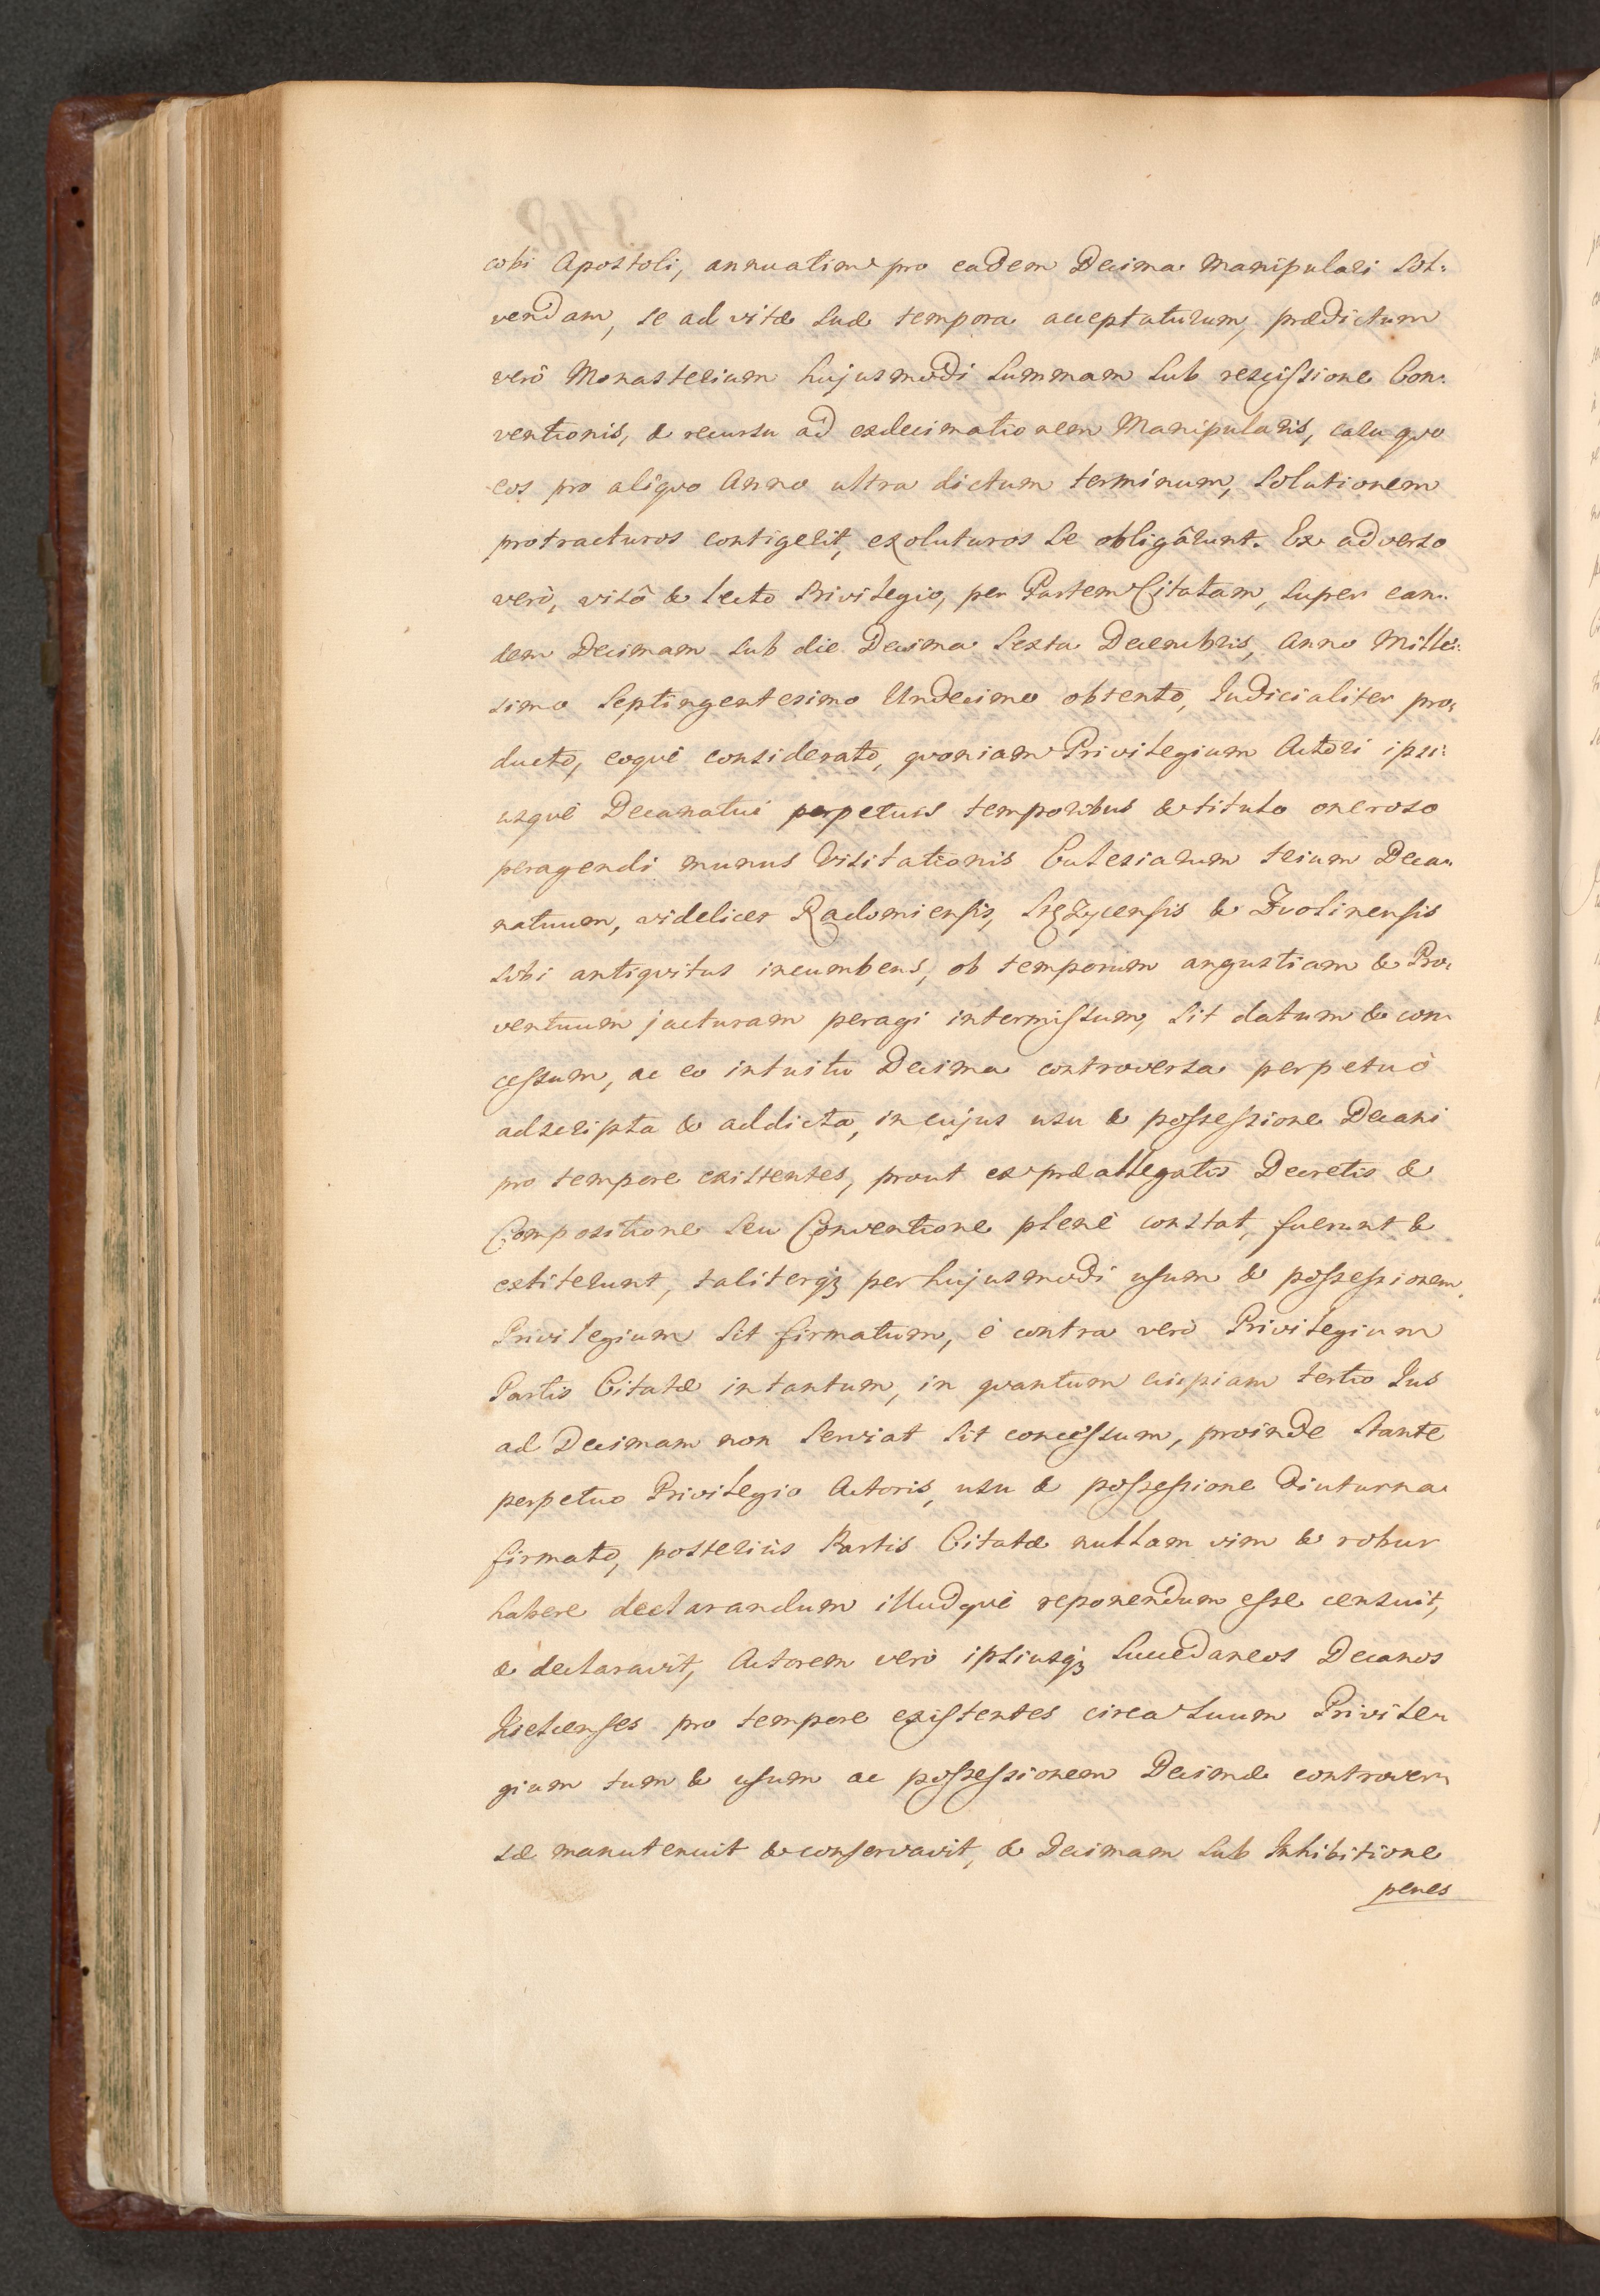 cobi Apostoli, annuatim pro eadem Decima Manipulari Sol:
vendam, se ad vitæ suæ tempora acceptaturum, prædictum
verò Monasterium hujusmodi Summam sub rescissione Con:
ventionis, & recursu ad exdecimationem Manipularis, casu quo
eos pro aliquo Anno ultra dictum terminum, Solutionem
protracturos contigerit, exoluturos se obligârunt. Ex adverso
verò, visô & lecto Privilegio, per Partem Citatam, super ean:
dem Decimam sub die Decima Sexta Decembris, Anno Mille:
simo Septingentesimo Undecimo obtento, Iudicialiter pro:
ducto, eoquè considerato, quoniam Privilegium Actori ipsi:
usquè Decanatui perpetuis temporibus & titulo oneroso
peragendi munus Visitationis Ecclesiarum trium Deca:
natuum, videlicet Radomiensis, Stęzycensis & Zvolinensis
sibi antiquitus incumbens, ob temporum angustiam & Pro:
ventuum jacturam peragi intermissum, sit datum & con:
cessum, ac eo intuitu Decima controversa perpetuò
adscripta & addicta, in cujus usu & possessione Decani
pro tempore existentes, prout ex præallegatis Decretis &
Compositione seu Conventione plenè constat, fuerunt &
extiterunt, taliterq3 per hujusmodi usum & possessionem,
Privilegium sit firmatum, è contra verò Privilegium
Partis Citatæ in tantum, in quantum cuipiam tertio Ius
ad Decimam non serviat sit concessum, proinde stante
perpetuo Privilegio Actoris, usu & possessione diuturna
firmato, posteriùs Partis Citatæ nullam vim & robur
habere declarandum illudquè reponendum esse censuit,
& declaravit, Actorem verò ipsiusq3 Succedaneos Decanos
Kielcenses pro tempore existentes circa suum Privile:
gium tum & usum ac possessionem Decimæ controver:
sæ manutenuit & conservavit, & Decimam sub Inhibitione
penes